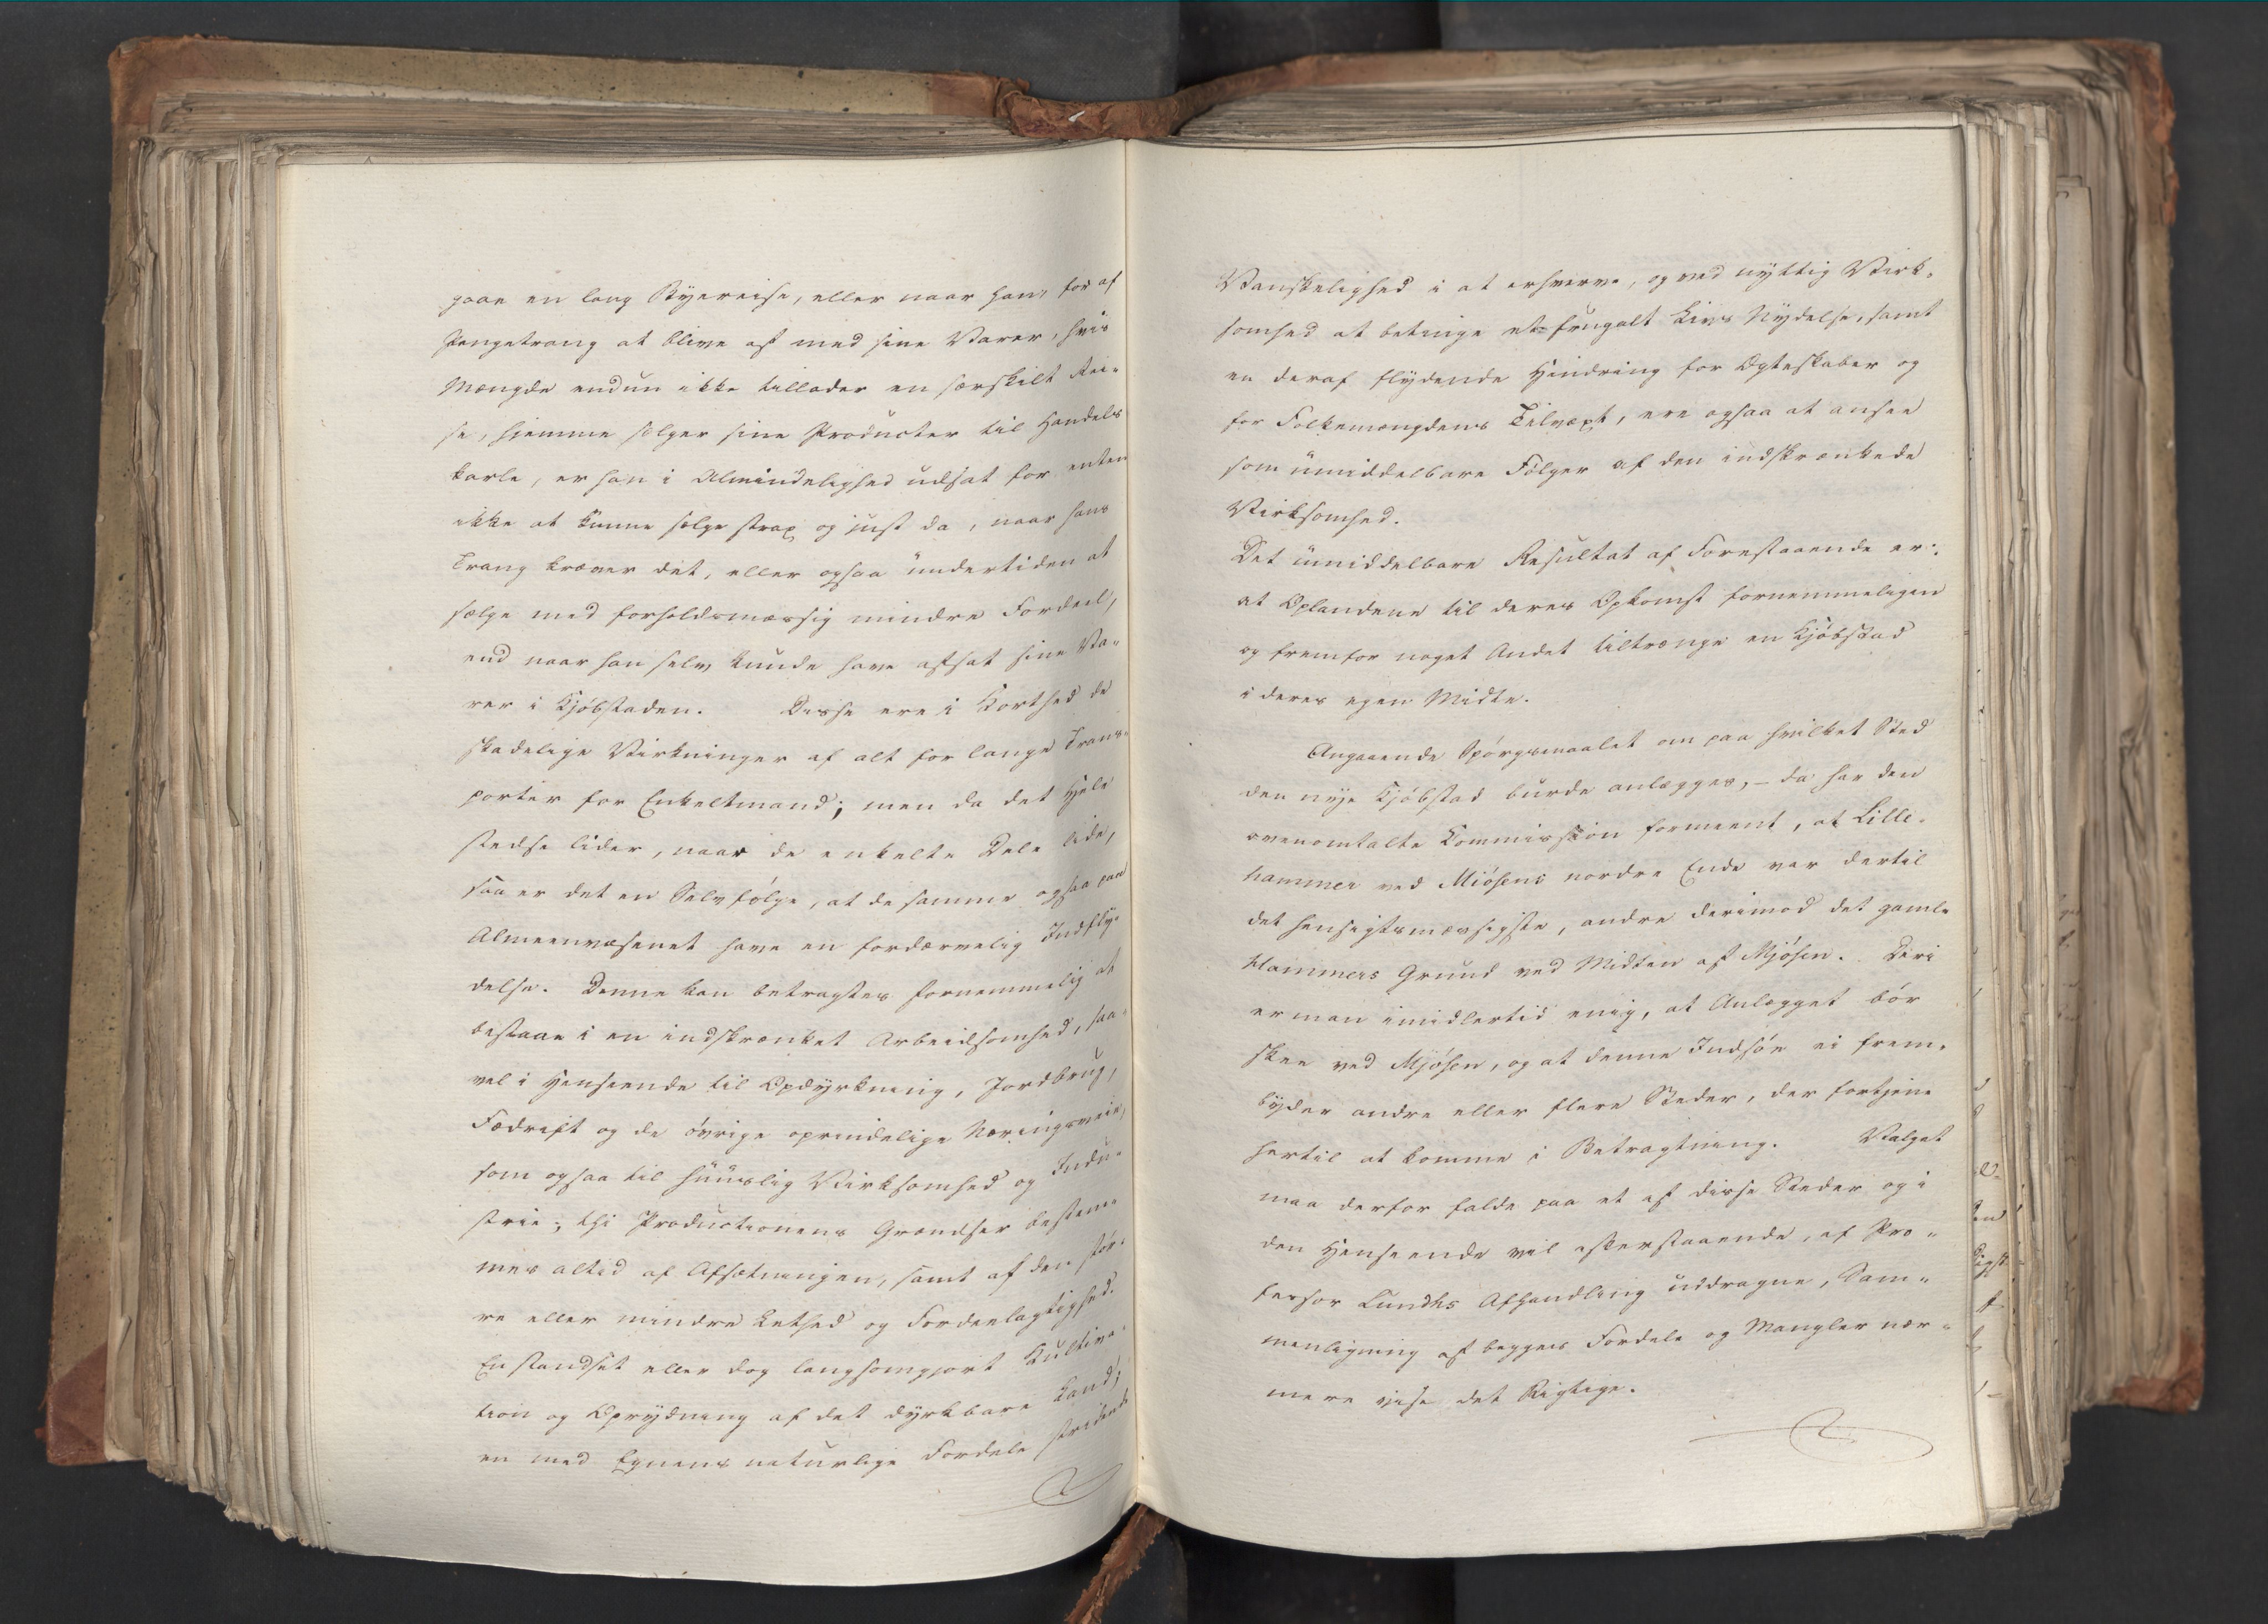 gaae en lang Byereise, eller naar han, for af
Pengetrang at blive af med sine Varer, hvis
Mængde endnu ikke tillader en særskilt Rei-
se, hjemme sælger sine Producter til Handels
karle, er han i Almindelighed udsat for enten
ikke at kunne sælge strax og just da, naar hans
Trang kræver det, eller ogsaa undertiden at
sælge med forholdsmæssig mindre Fordeel,
end naar han selv kunde have afsat sine Va-
rer i Kjøbstaden. Disse ere i Korthed de
skadelige Virkninger af alt for lange Trans-
porter for Enkeltmand; men da det Hele
stedse lider, naar de enkelte Dele lide,
saa er det en Selvfølge, at de samme ogsaa paa
Almeenvæsenet have en fordærvelig Indfly-
delse. Denne kan betragtes fornemmelig at
bestaae i en indskrænket Arbeidsomhed, saa-
vel i Henseende til Opdyrkning, Jordbrug,
Fædrift og de øvrige oprindelige Næringsveie,
som ogsaa til huuslig Virksomhed og Indu-
strie; thi Productionens Grændser bestem-
mes altid af Afsætningen, samt af den stør-
re eller mindre Lethed og Fordeelagtighed.
En standset eller dog langsomgjort Kultiva-
tion og Oprydning af det dyrkbare Land;
en med Egnens naturlige Fordele stridende
Vanskelighed i at erhverve, og ved nyttig Virk-
somhed at betinge et frugalt Livs Nydelse, samt
en deraf flydende Hindring for Ægteskaber og
for Folkemængdens Tilvæxt, ere ogsaa at ansee
som umiddelbare Følger af den indskrænkede
Virksomhed.
Det umiddelbare Resultat af Forestaaende er:
at Oplandene til deres Opkomst fornemmeligen
og fremfor noget Andet tiltrænge en Kjøbstad
i deres egen Midte.
Angaaende Spørgsmaalet om paa hvilket Sted
den nye Kjøbstad burde anlægges, - da har den
ovenomtalte Kommission formeent, at Lille-
hammer ved Miøsens nordre Ende var dertil
det hensigtsmæssigste, andre derimod det gamle
Hammers Grund ved Midten af Mjøsen. Deri
er man imidlertid enig, at Anlægget bør
skee ved Mjøsen, og at denne Indsøe ei frem-
byder andre eller flere Steder, der fortjene
hertil at komme i Betragtning. Valget
maa derfor falde paa et af disse Steder og i
den Henseende vil efterstaaende, af Pro-
fessor Lundhs Afhandling uddragne, Sam-
menligning af begges Fordele og Mangler nær-
mere vise det Rigtige.